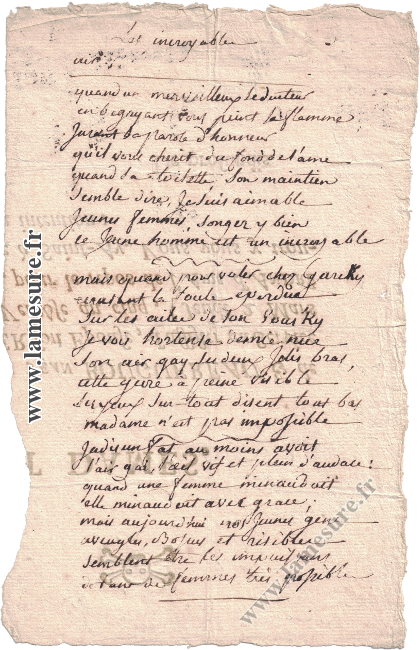 Les incroyable
air
quand un merveilleux seducteur
en begayant vous peint sa flamme
Jurant sa parole d'honneur
qu'il vous cherit du fond de l'ame
quand sa toilette son maintien
semble dire, Je suis aimable
Jeunes femmes, songez y bien
ce Jeune homme est un incroyable
mais quand pour voler chez garcky
la foule eperdue
sur les ailes de son
Je vois hortense demie nue
Son air gay ses deux Jolis bras,
a peine visible
ses yeux sur-tout disent tous bas
madame n'est pas impossible
Jadis un fat au moins avoit
l'air gai, l'oeil vif et plein d'audace:
quand une femme minaudoit
elle minaudoit avec grace;
mais aujourd'hui nos Jeunes gens
aveugles, Bossus et risibles
semblent etre les
de femmes très possible
www.lamesure.fr
www.lamesure.fr